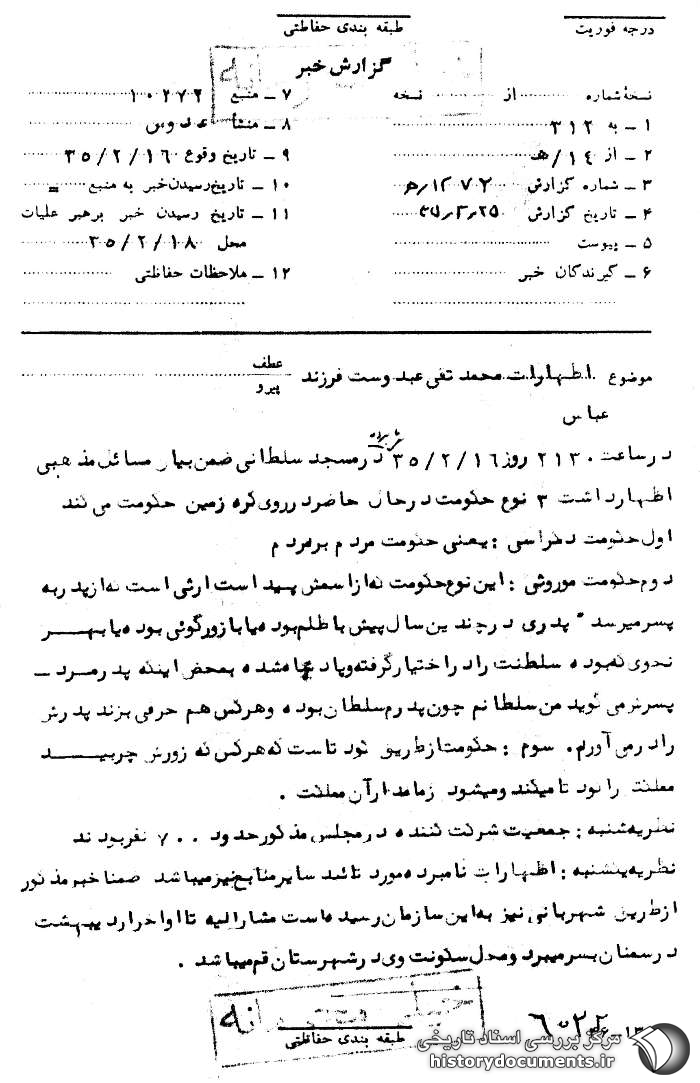 درجه فوریت
طبقه بندی حفاظتی
گزارش خبر
نسخهٔ شماره .......... از .......... نسخه
۱ ـ به ۳۱۲
۲ ـ از ۱۴/هـ
۳ ـ شماره گزارش ۱۲۷۰۲/هـ
۴ ـ تاریخ گزارش ۳۵،۲،۲۵
۵ ـ پیوست
۶ ـ گیرندگان خبر
۷ ـ منبع ۱۰۲۷۲
۸ ـ منشأ
۹ ـ تاریخ وقوع ۳۵/۲/۱۶
۱۰ ـ تاریخ رسیدن خبر به منبع =
۱۱ ـ تاریخ رسیدن خبر برهبر عملیات
محل ۳۵/۲/۱۸
۱۲ ـ ملاحظات حفاظتی
موضوع اظهارات محمد تقی عبدوست فرزند عطف
پیرو
عباس
در ساعت ۲۱۳۰ روز ۳۵/۲/۱۶ در مسجد سلطانی ضمن بیان مسائل مذهبی
اظهار داشت ۳ نوع حکومت در حال حاضر در روی کره زمین حکومت می کند
اول حکومت دمکراسی : یعنی حکومت مردم بر مردم
دوم حکومت موروثی : این نوع حکومت که از اسمش پیداست ارثی است که از پدر به
پسر میرسد پدری در چندین سال پیش با ظلم بوده یا با زورگوئی بوده یا بهر
نحوی که بوده سلطنت را در اختیار گرفته و پادشاه شده بمحض اینکه پدر مرد ـ
پسرش می گوید من سلطانم چون پدرم سلطان بوده و هرکس هم حرفی بزند پدرش
را درمی آورم. سوم : حکومت از طریق کودتاست که هرکس که زورش چربید
مملکت را کودتا میکند و میشود زمامدار آن مملکت .
نظریه شنبه : جمعیت شرکت کننده در مجلس مذکور حدود ۷۰۰ نفر بودند
نظریه یکشنبه : اظهارات نامبرده مورد تائید سایر منابع نیز میباشد ضمنا خبر مذکور
از طریق شهربانی نیز به این سازمان رسیده است مشارالیه تا اواخر اردیبهشت
در سمنان بسر میبرد و محل سکونت وی در شهرستان قم میباشد .
طبقه بندی حفاظتی
مرکز بررسی اسناد تاریخی
historydocuments.ir